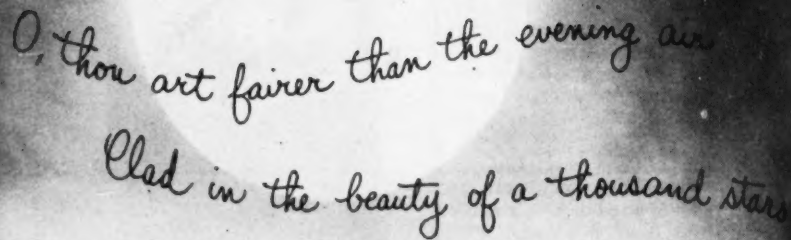 O, thou art fairer than the evening air
Clad in the beauty of a thousand stars